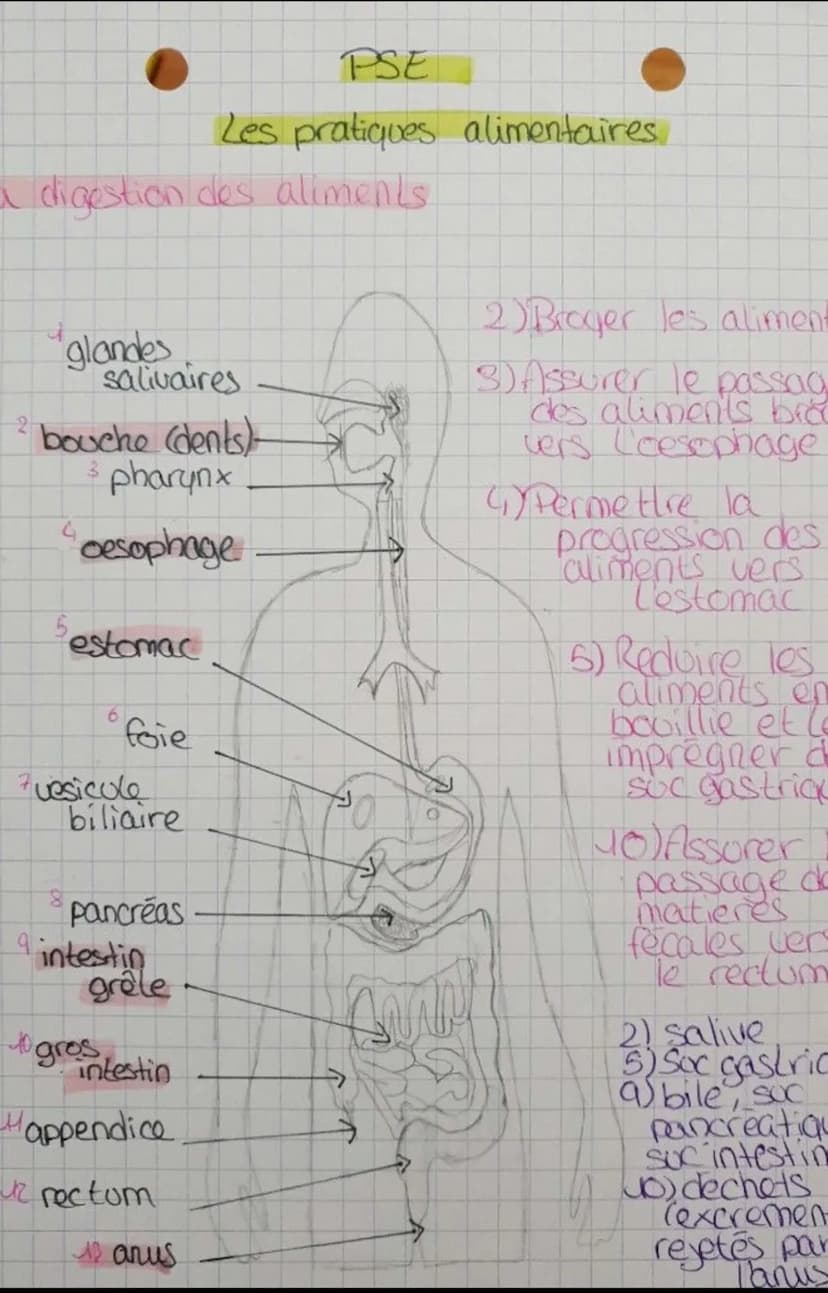 PSE
Les pratiques alimentaires
a digestion des aliments
1 glandes
salivaires
2 bouche (dents)
3 pharynx
4 oesophage
5 estomac
6 foie
7 vésicule
biliaire
8 pancréas
9 intestin
grêle
10 gros
intestin
11 appendice
12 rectum
13 anus
2) Broyer les alimen
3) Assurer le passag
des aliments
vers l'oesophage
4) Permettre la
progression des
aliments vers
l'estomac
5) Réduire les
aliments en
bouillie et le
imprégner d
suc gastriq
10) Assurer
passage de
matières
fécales vers
le rectum
2) salive
5) Suc gastric
9) bile, suc
pancréatiqu
suc intestin
10) déchets
(excrémen
rejetés par
l'anus